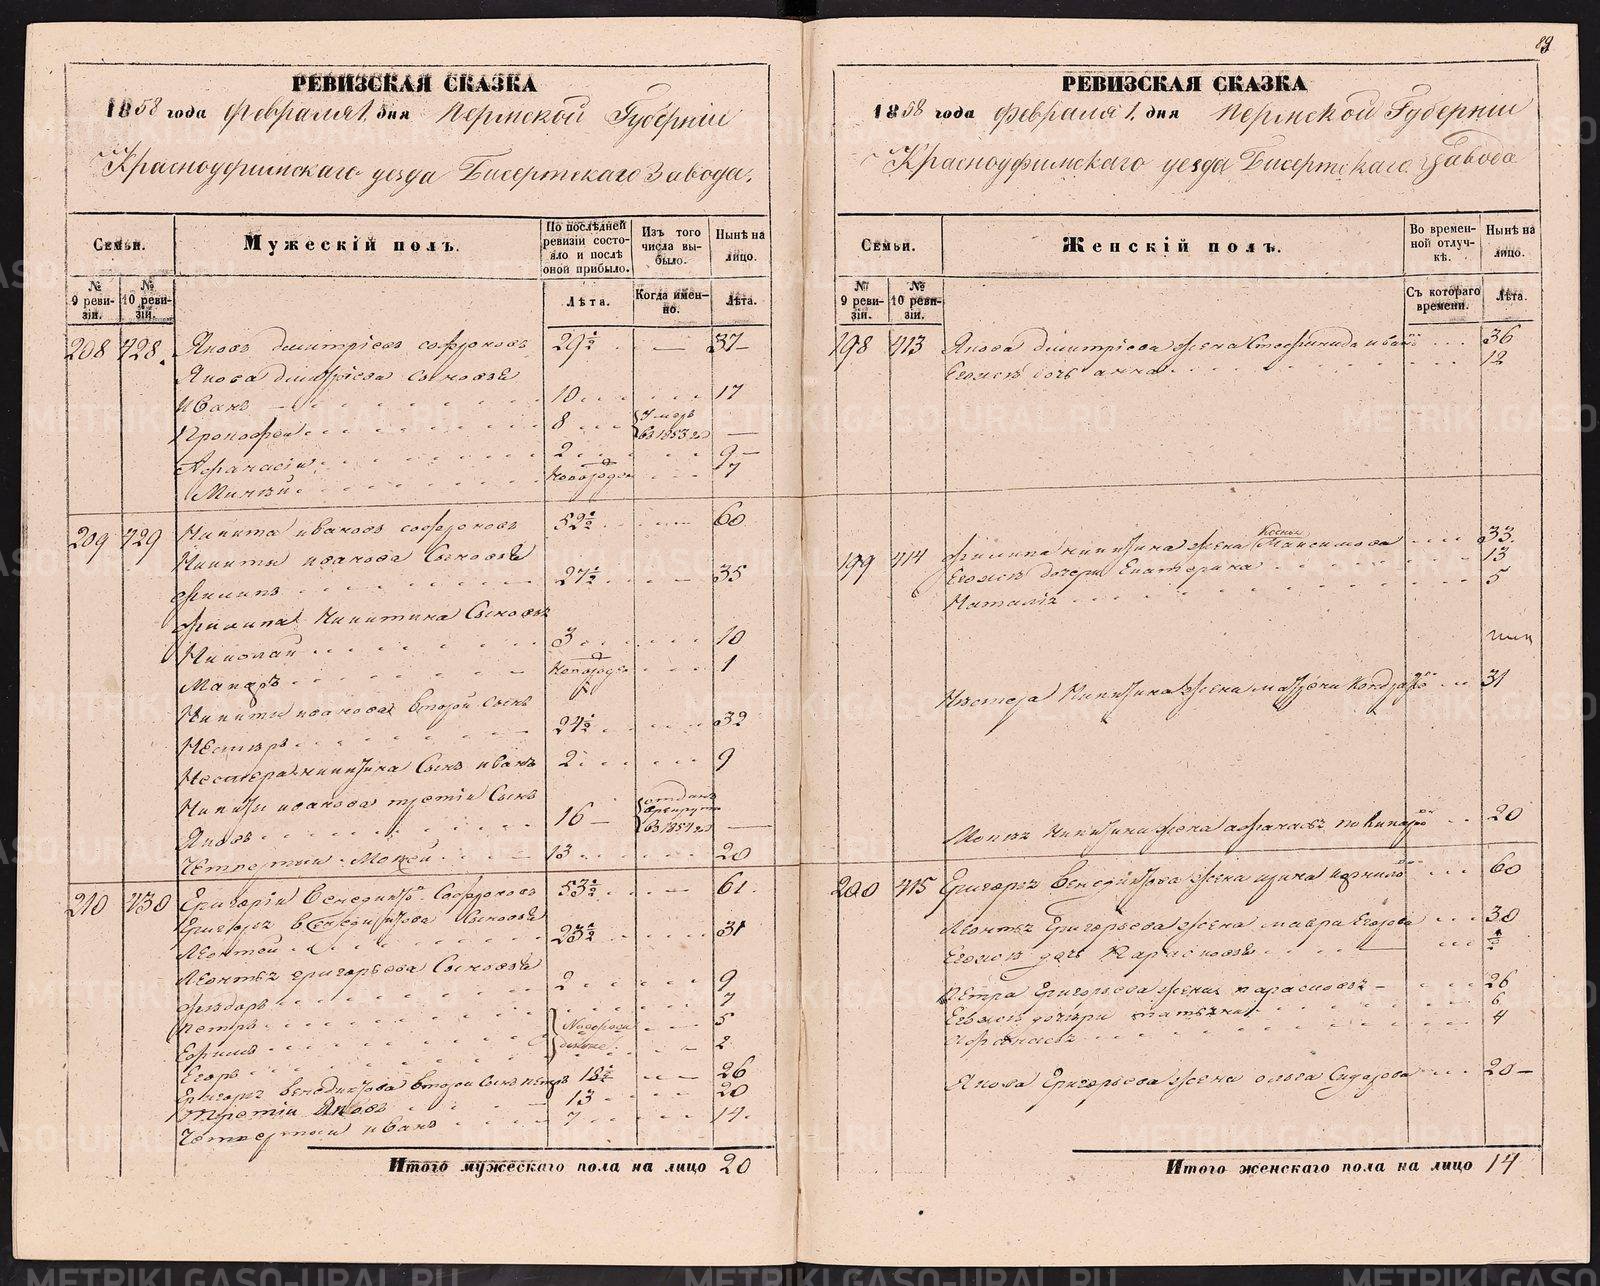 89
РЕВИЗСКАЯ СКАЗКА
1858 года Февраля 1. дня Пермской Губернiи
Красноуфимскаго уезда Бисертскаго Завода.
Семьи.
Мужескiй полъ.
По послѣдней ревизiи состояло и послѣ оной прибыло.
Изъ того числа выбыло.
Нынѣ на лицо.
№ 9 ревизiи.
№ 10 ревизiи.
Лѣта.
Когда именно.
Лѣта.
208 428. Яковъ дмитрiевъ софроновъ 29½ 37
Якова дмитрiева сыновья
Иванъ 10 17
Прокофей 8 Умеръ в 1853 г.
Афанасiй 2 9
Мин 7
209 429 Никита ивановъ софроновъ 52½ 60
Никиты иванова Сыновья
филипъ 27½ 35
филипа Никитина Сыновья
Николай 3 10
Макаръ 1
Никиты иванова второй сынъ
Нестеръ 24½ 32
Нестера никитина Сынъ иванъ 2 9
Никиты иванова третiй Сынъ
Яковъ 16 отданъ в рекруты в 1854 г.
Четвертый Мокей 13 20
210 430 Григорiй Венедикто. Софроновъ 53½ 61
Григорья Венедиктова Сыновья
Леонтей 23½ 31
Леонтья григорьева Сыновья
фёдоръ 2 9
Петръ 7
Ефимъ 5
Егоръ 2
Григорья Венедиктова второй Сынъ петръ 18½ 26
Третiй Яковъ 13 20
Четвертый иванъ 7 14.
Итого мужескаго пола на лицо 20
РЕВИЗСКАЯ СКАЗКА
1858 года февраля 1. дня Пермской Губернiи
Красноуфимскаго уезда Бисертскаго Завода
Семьи.
Женскiй полъ.
Во временной отлучкѣ.
Нынѣ на лицо.
№ 9 ревизiи.
№ 10 ревизiи.
Съ котораго времени.
Лѣта.
198 413 Якова дмитрiева жена Стефанида 36
Егожъ дочь анна 12
199 414 филипа никитина жена Максимова 33.
Егожъ дочери Екатерина 13
Наталья 5
Нестера Никитина жена матрена 31
Никитина жена афанасья 20
200 415 Григорья Венедиктова жена ирина 60
Леонтья Григорьева жена мавра Егорова 30
Егожъ дочь ½
Петра Григорьева жена парасковья 26
Егожъ дочери татьяна 6
афанасья 4
Якова Григорьева жена ольга Сидорова 20
Итого женскаго пола на лицо 14